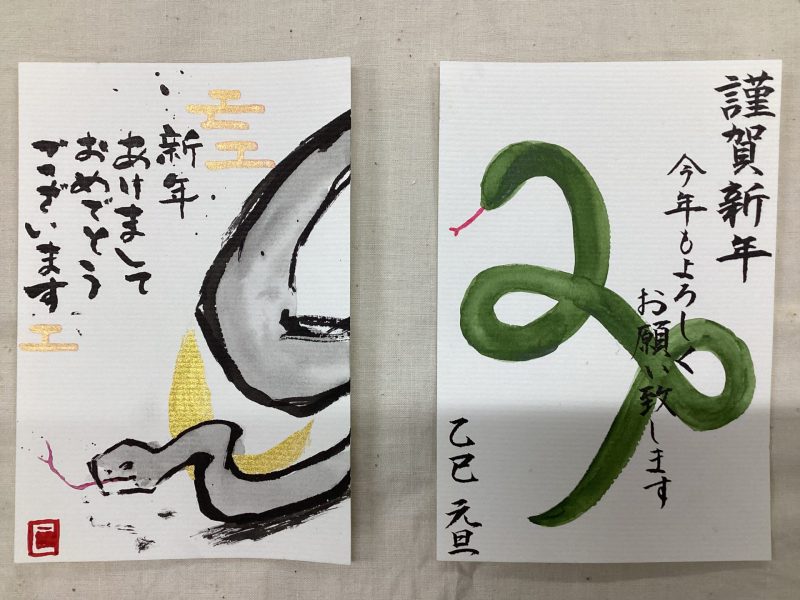 新年
あけまして
おめでとう
ございます
謹賀新年
今年もよろしく
お願い致します
乙巳 元旦